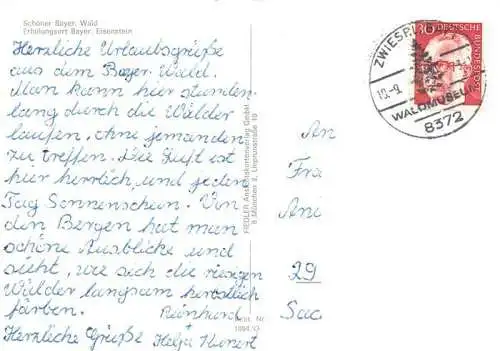 Schöner Bayer. Wald
Erholungsort Bayer. Eisenstein
Herzliche Urlaubsgrüße
aus dem Bayer. Wald.
Man kann hier stunden-
lang durch die Wälder
laufen, ohne jemanden
zu treffen. Die Luft ist
hier herrlich und jeden
Tag Sonnenschein. Von
den Bergen hat man
schöne Ausblicke und
sieht, wie sich die riesigen
Wälder langsam herbstlich
färben. Reinhard
Herzliche Grüße Helga
FIEDLER Ansichtskartenverlag GmbH
8 München 2, Linprunstraße 10
Best. Nr.
An
Fra
Ani
29
Sac
30 DEUTSCHE BUNDESPOST
ZWIESEL
10.-9.
WALDMUSEUM
8372